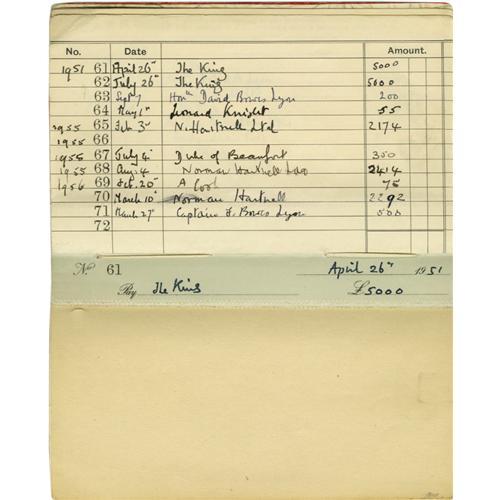 No. Date Amount.
1951 61 April 26th The King 5000
62 July 26th The King 5000
63 Sept 7 Honble David Bowes Lyon 200
64 May 1st Leonard Knight 55
1955 65 Feb 3rd N. Hartnell Ltd 2174
1955 66
1956 67 July 4 Duke of Beaufort 350
1955 68 Aug 4 Norman Hartnell 2414
1956 69 Feb. 20th A 75
70 March 10th Norman Hartnell 2292
71 March 27th Captain Bowes Lyon 500
72
No 61 April 26th 1951
Pay The King £5000